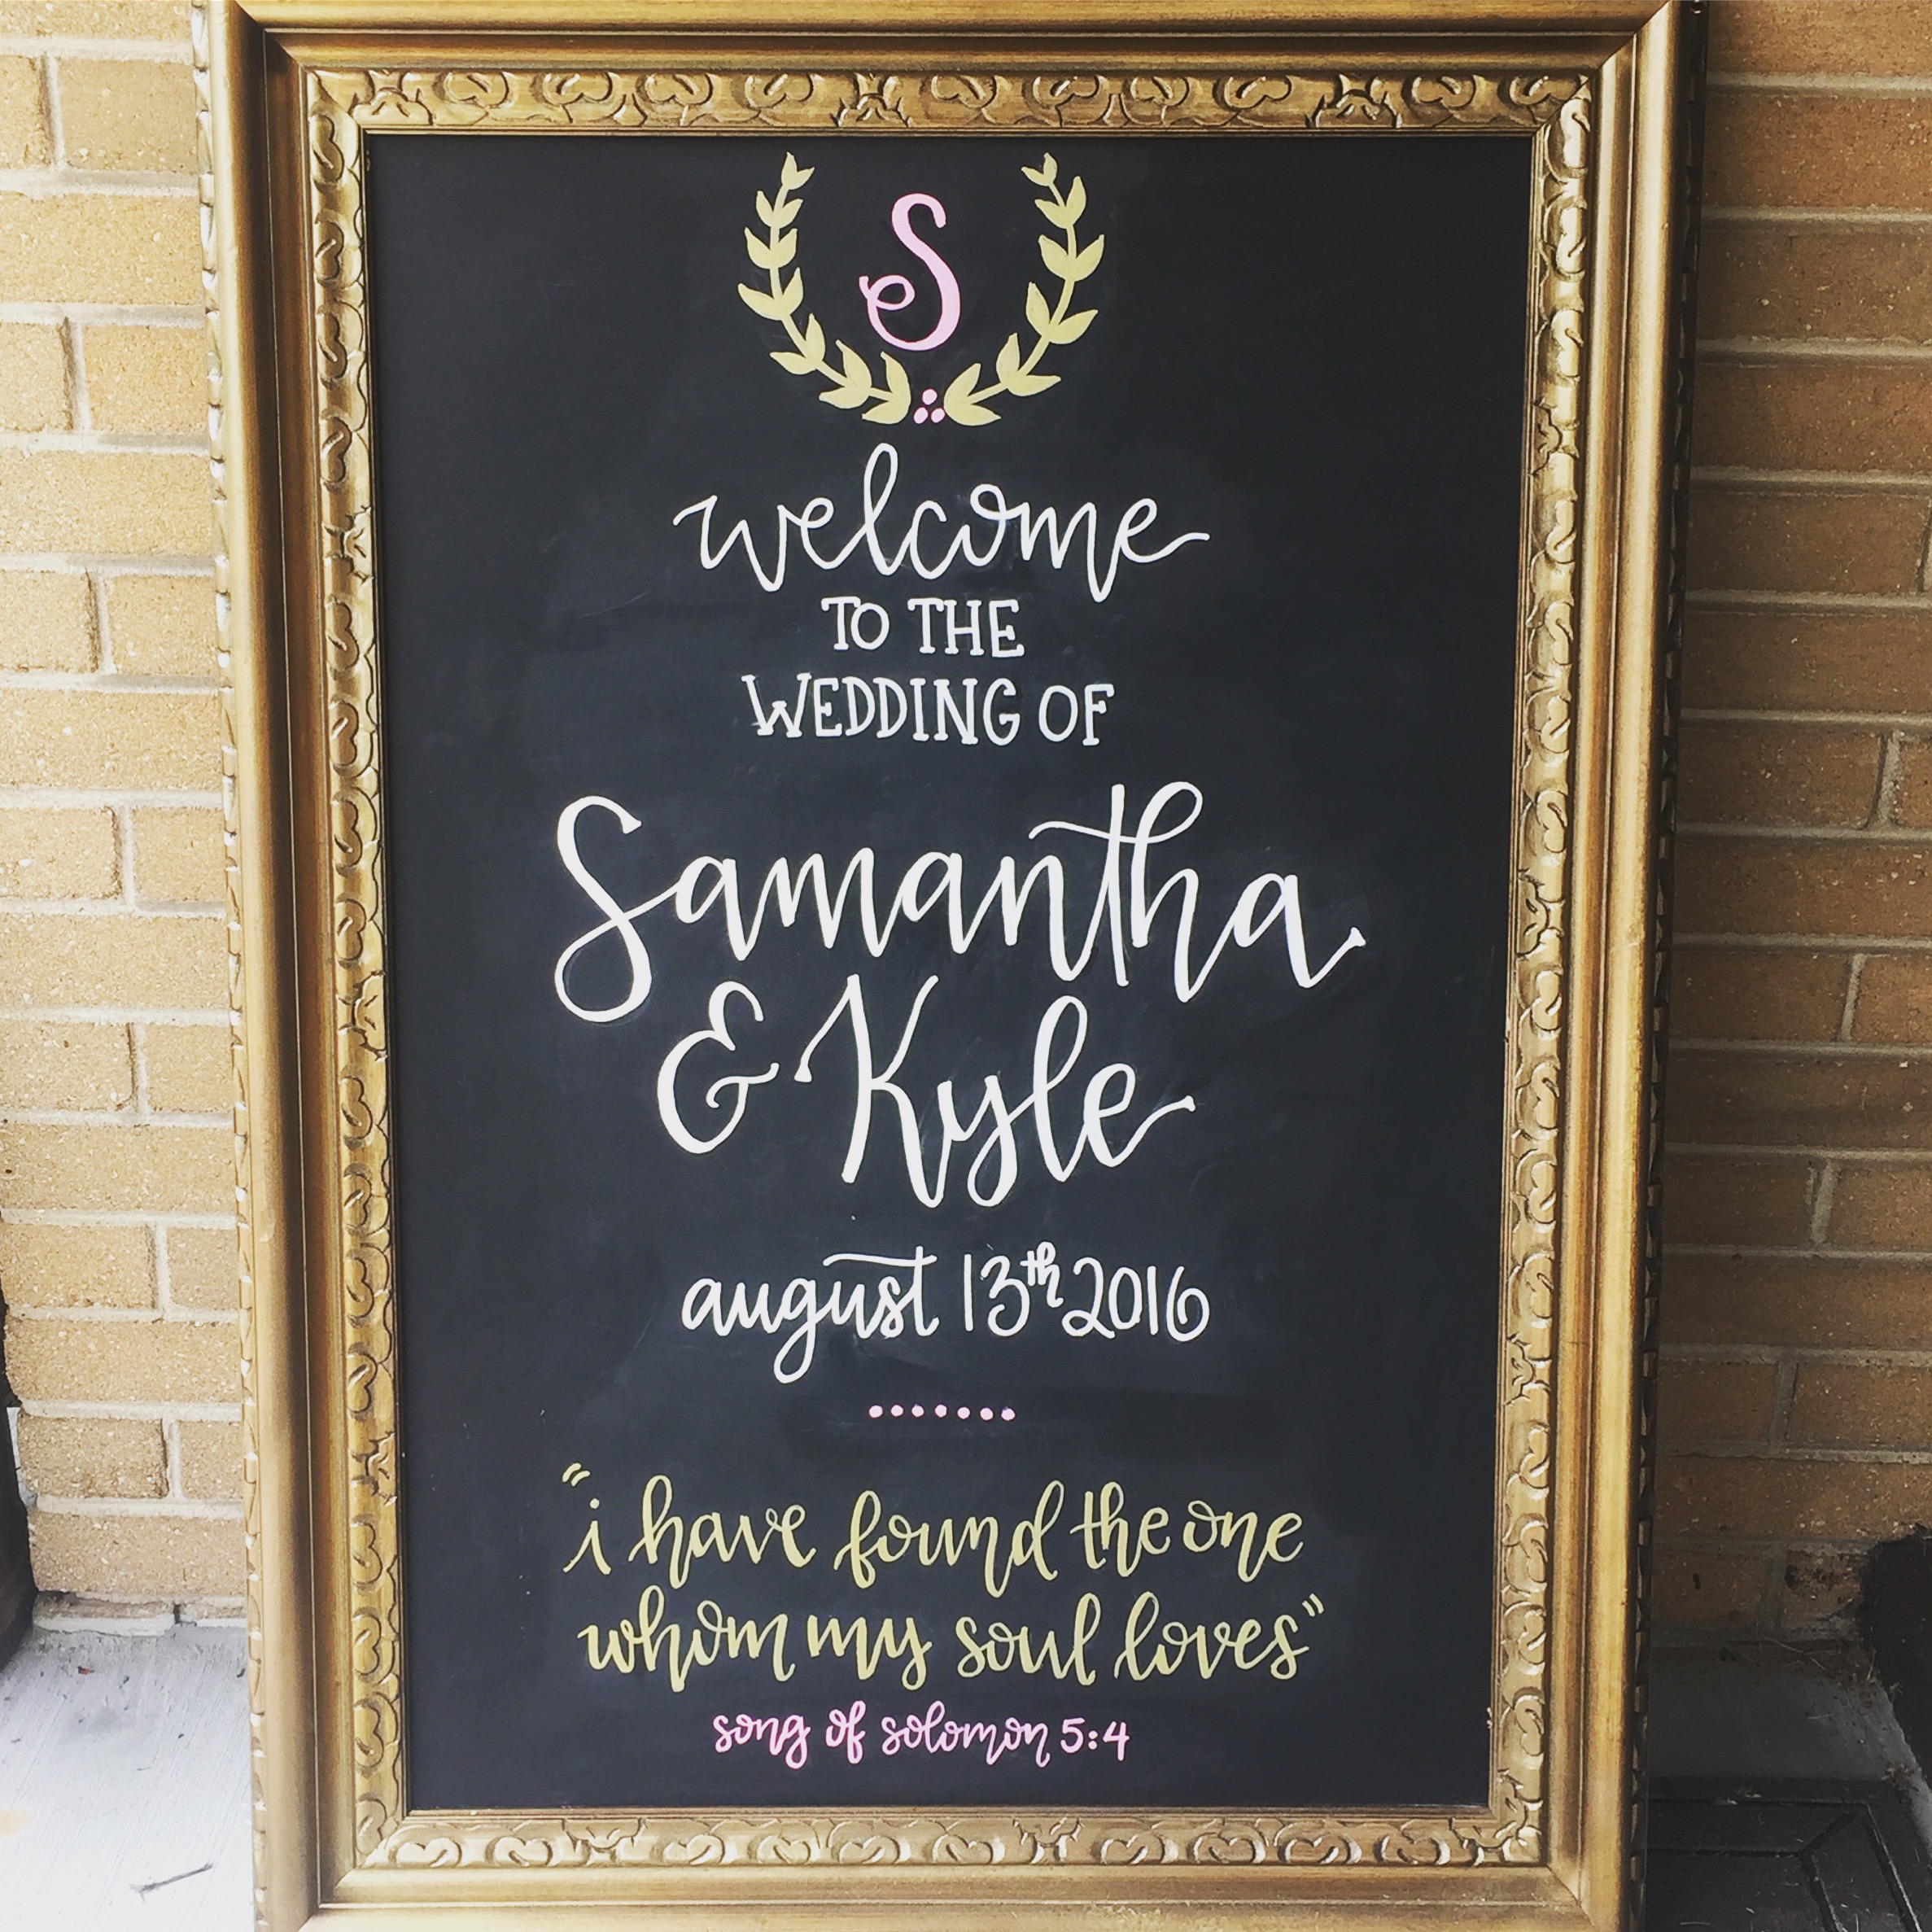 S
welcome
TO THE
WEDDING OF
Samantha
& Kyle
august 13th 2016
"i have found the one
whom my soul loves"
song of solomon 5:4